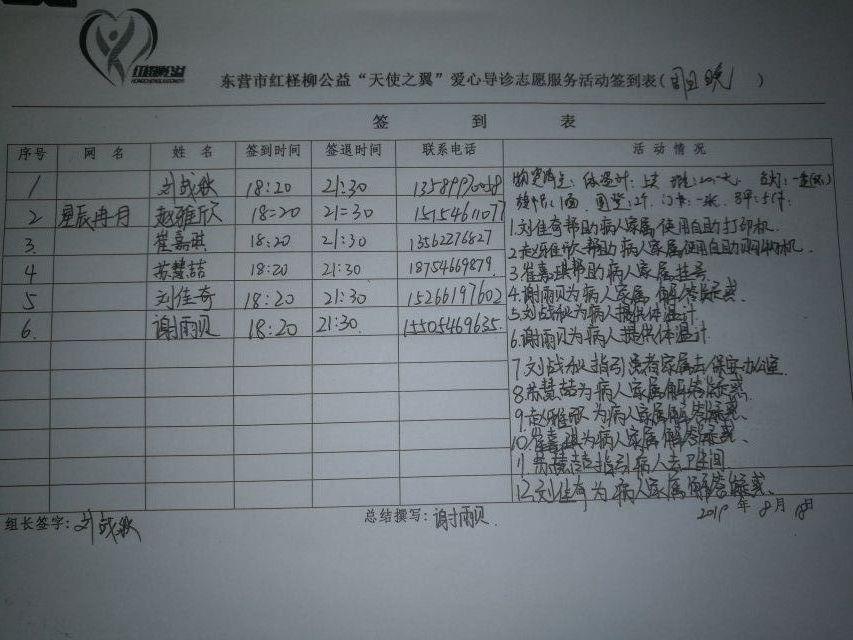 东营市红柽柳公益“天使之翼”爱心导诊志愿服务活动签到表( 周日晚 )
签 到 表
序号 网 名 姓 名 签到时间 签退时间 联系电话 活 动 情 况
1 刘战秋 18:20 21:30
2 星辰冉月 赵雅欣 18:20 21:30 15154611077
3. 崔嘉琪 18:20 21:30 13562276827
4 苏慧喆 18:20 21:30 18754669879
5 刘佳奇 18:20 21:30 15266197602
6. 谢雨贝 18:20 21:30. 15505469635.
1.刘佳奇帮助病人家属使用自助打印机.
2.赵雅欣帮助病人家属使用自助购物机.
3.崔嘉琪帮助病人家属挂号
4.谢雨贝为病人家属解答疑惑.
5.刘战秋为病人提供体温计
6.谢雨贝为病人提供体温计
7.刘战秋指引患者家属去保安办公室.
8.苏慧喆为病人家属解答疑惑.
9.赵雅欣为病人家属解答疑惑.
10.崔嘉琪为病人家属解答疑惑.
11.苏慧喆指引病人去卫生间
12.刘佳奇为病人家属解答疑惑.
组长签字: 刘战秋 总结撰写: 谢雨贝. 2019 年 8 月 18日